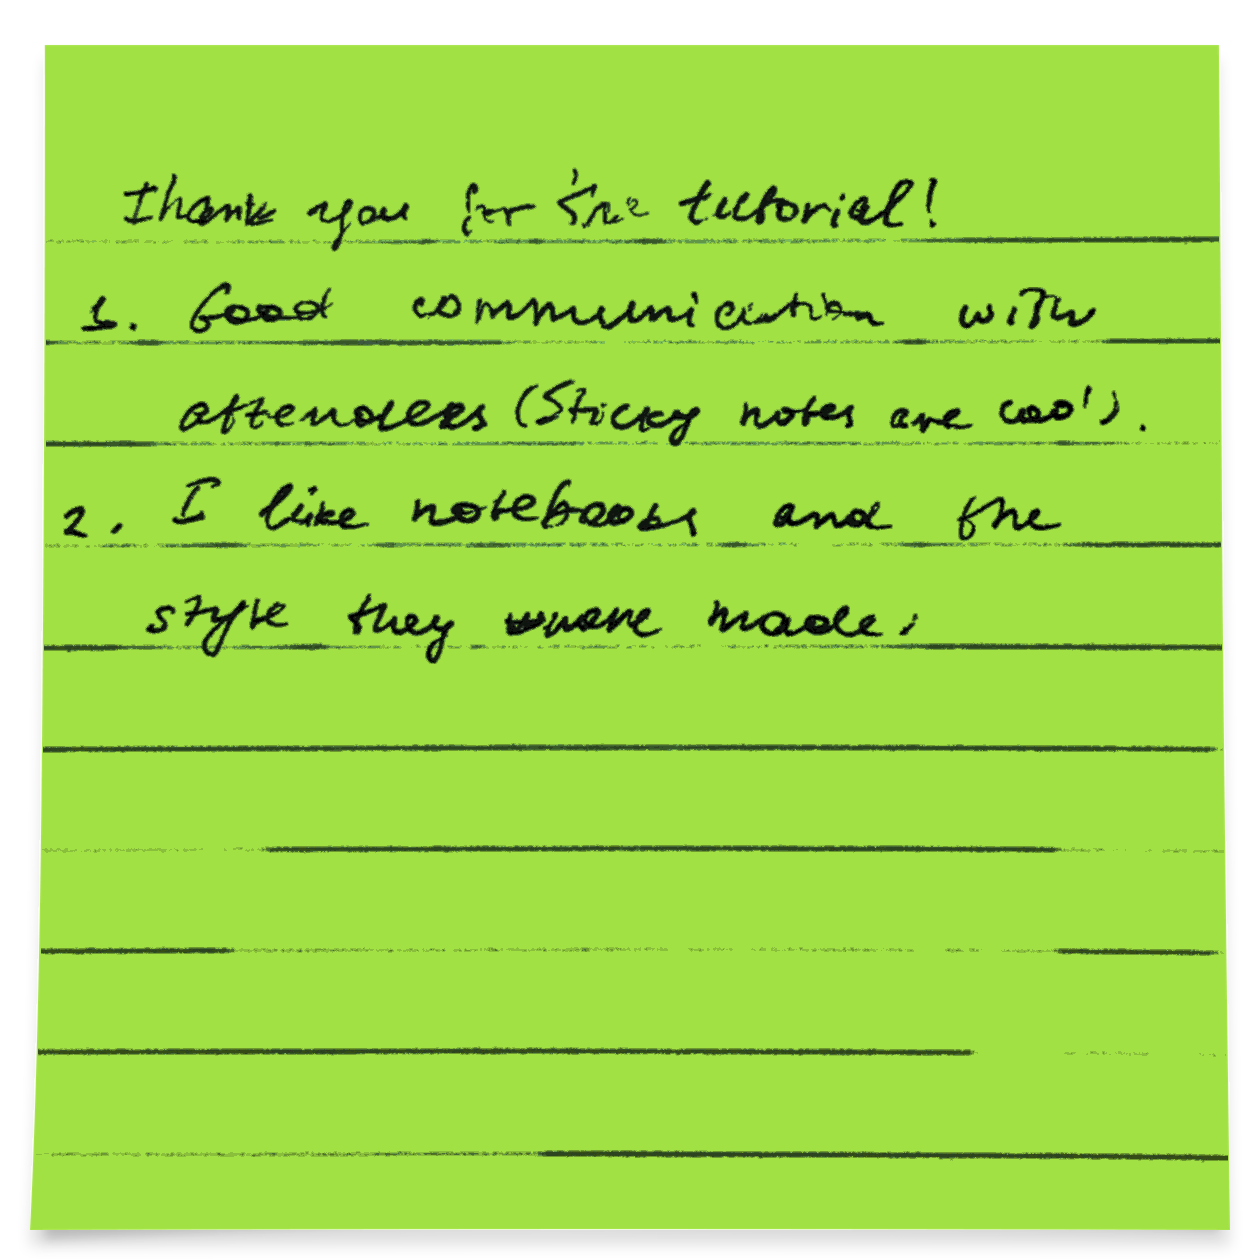 Thank you for the tutorial!
1. Good communication with
attenders (Sticky notes are cool).
2. I like notebooks and the
style they were made.